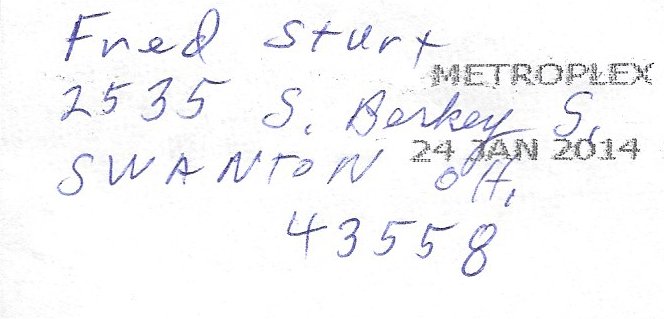 Fred Sturt
METROPLEX
2535 S. Berkey S.
24 JAN 2014
SWANTON OH,
43558